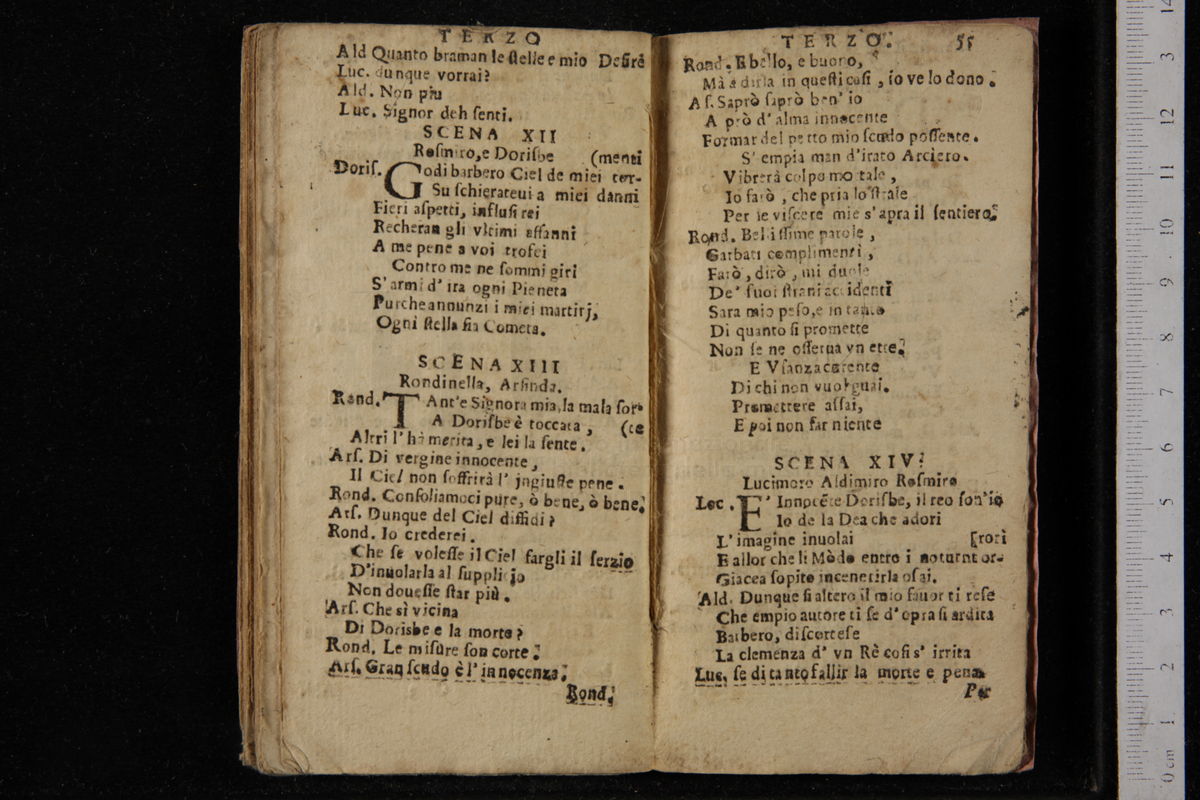 TERZO
Ald Quanto braman le ſtelle e mio Deſire
Luc. dunque vorrai?
Ald. Non piu
Luc. Signor deh ſenti.
SCENA XII
Roſmiro, e Dorisbe (menti
Doriſ. Godi barbero Ciel de miei tor-
Su ſchierateui a miei danni
Fieri aſpetti, influſi rei
Recheran gli vltimi affanni
A me pene a voi trofei
Contro me ne ſommi giri
S'armi d'ira ogni Pieneta
Purche annunzi i miei martirj,
Ogni ſtella ſia Cometa.
SCENA XIII
Rondinella, Arſinda.
Rond. TAnt'e Signora mia, la mala ſor-
A Dorisbe è toccata, (te
Altri l'hà merita, e lei la ſente.
Arſ. Di vergine innocente,
Il Ciel non ſoffrirà l'ingiuſte pene.
Rond. Conſoliamoci pure, ò bene, ò bene.
Arſ. Dunque del Ciel diffidi?
Rond. Io crederei.
Che ſe voleſſe il Ciel fargli il ſerzio
D'inuolarla al ſupplicio
Non doueſſe ſtar più.
Arſ. Che sì vicina
Di Dorisbe e la morte?
Rond. Le miſure ſon corte.
Arſ. Gran ſcudo è l'innocenza.
Rond.
TERZO. 55
Rond. E bello, e buono,
Mà a dirla in queſti caſi, io ve lo dono.
Aſ. Saprò ſaprò ben'io
A prò d'alma innocente
Formar del petto mio ſcudo poſſente.
S'empia man d'irato Arciero.
Vibrerà colpo mo tale,
Io farò, che pria lo ſtrale
Per le viſcere mie s'apra il ſentiero.
Rond. Belliſſime parole,
Garbati complimenti,
Farò, dirò, mi duole
De' ſuoi ſtrani accidenti
Sara mio peſo, e in tanto
Di quanto ſi promette
Non ſe ne oſſerua vn ette.
E Vſanza corente
Di chi non vuol guai.
Promettere aſſai,
E poi non far niente
SCENA XIV.
Lucimoro Aldimiro Roſmiro
Loc. E' Innocẽte Dorisbe, il reo ſon'io
Io de la Dea che adori
L'imagine inuolai [rori
E allor che li Mõdo entro i noturni or-
Giacea ſopito incenerirla oſai.
Ald. Dunque ſi altero il mio fauor ti reſe
Che empio autore ti fe d'opra ſi ardita
Barbero, diſcorteſe
La clemenza d'vn Rè coſi s'irrita
Luc. ſe di tanto fallir la morte e pena
Per